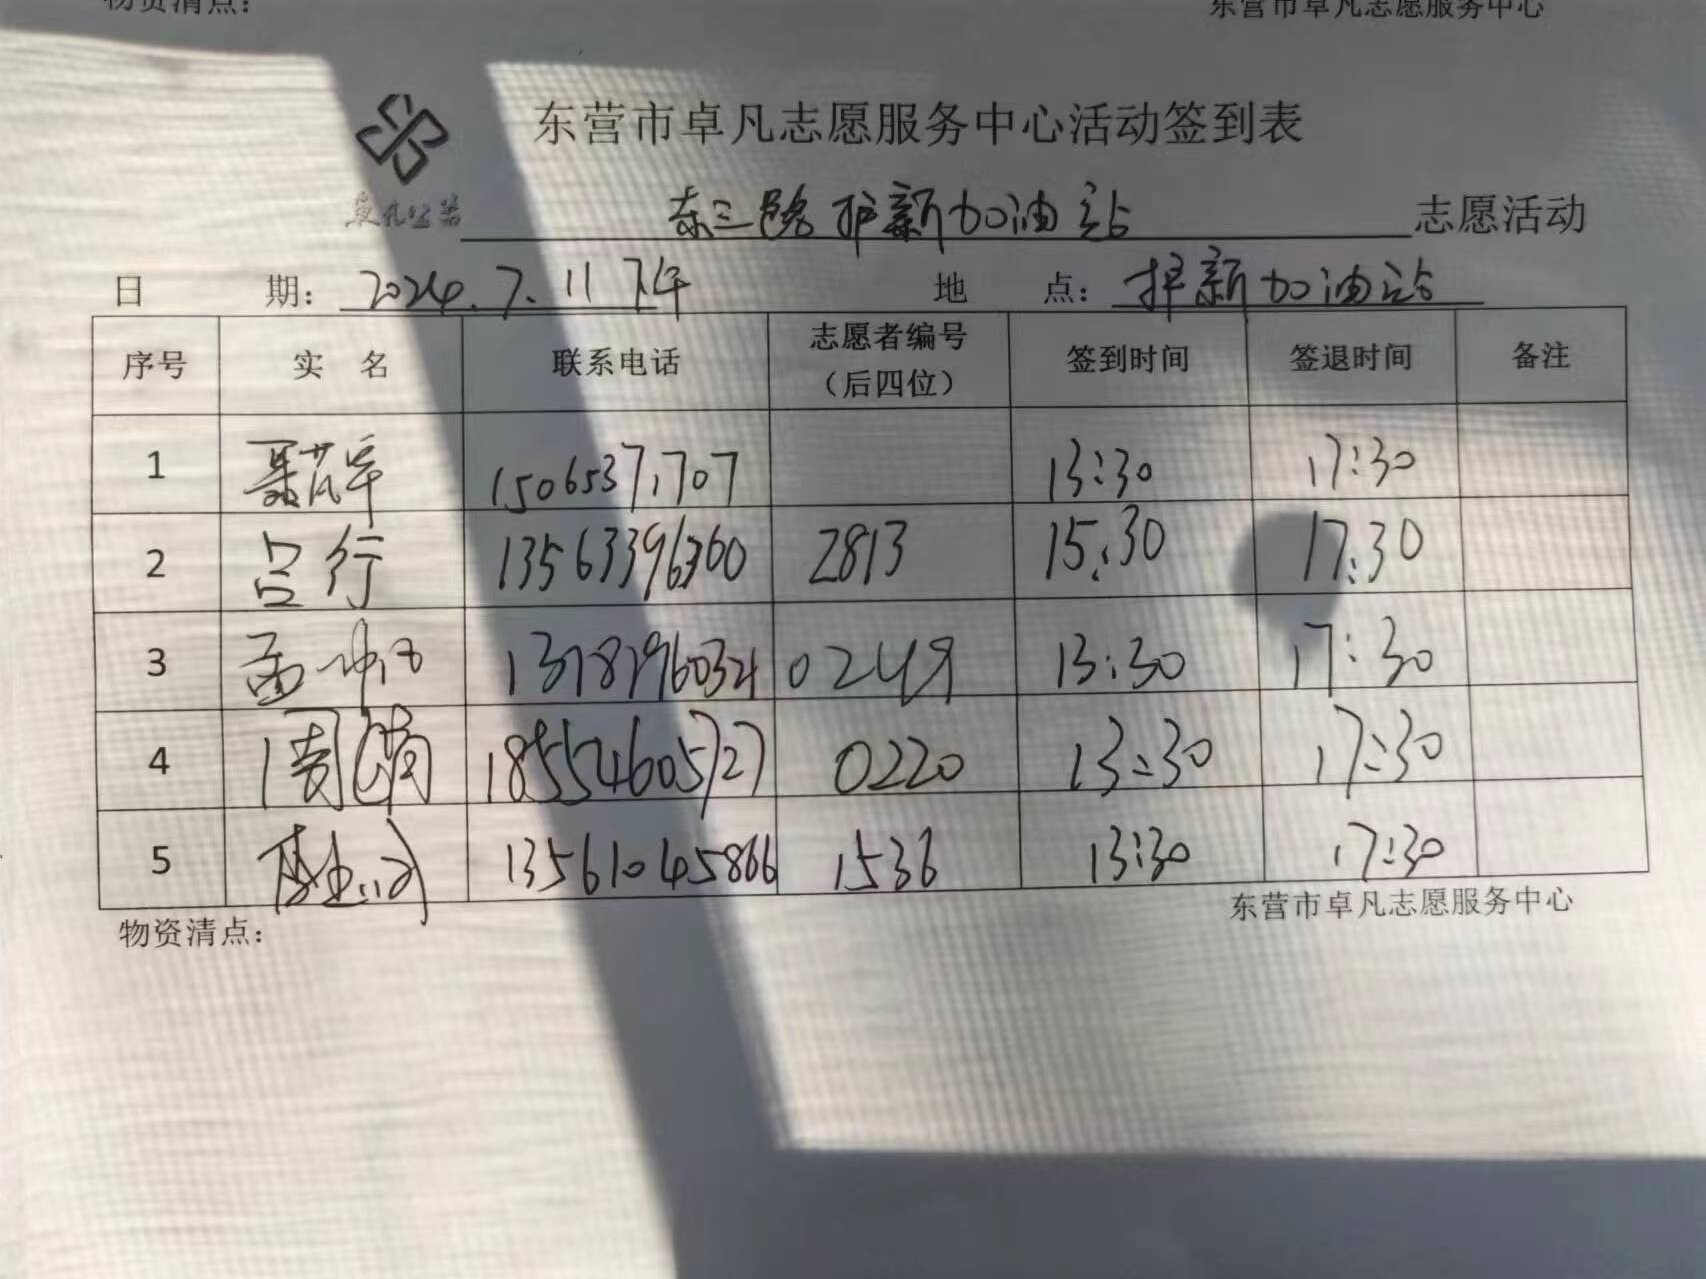 物资清点： 东营市卓凡志愿服务中心
东营市卓凡志愿服务中心活动签到表
卓凡公益
东三路护新加油站 志愿活动
日 期：2024.7.11 下午 地 点：护新加油站
序号 实 名 联系电话 志愿者编号（后四位） 签到时间 签退时间 备注
1 15065371707 13:30 17:30
2 吕行 13563396360 2813 15:30 17:30
3 0249 13:30 17:30
4 周倩 18554605727 0220 13:30 17:30
5 13561045866 1536 13:30 17:30
物资清点： 东营市卓凡志愿服务中心